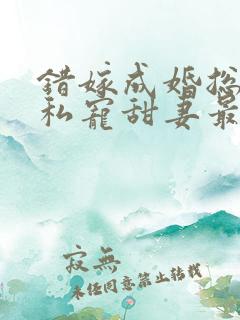 错嫁成婚总
私宠甜妻最
寂無
未经同意禁止转载